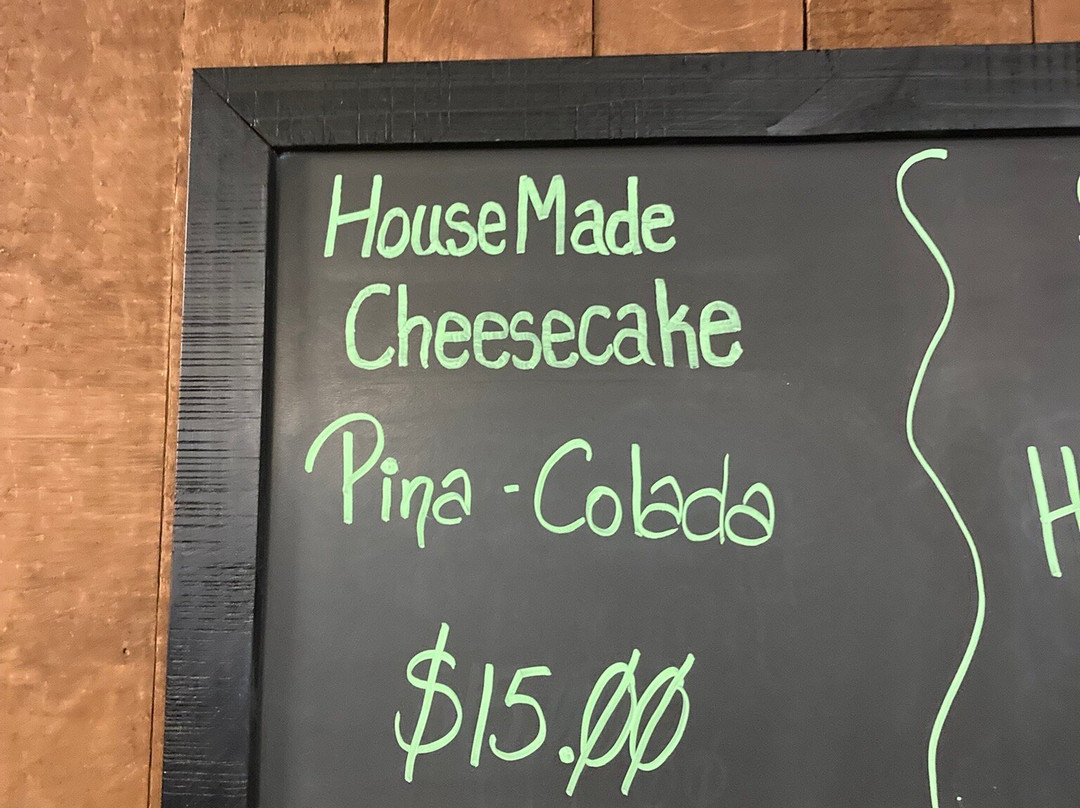 House Made
Cheesecake
Pina - Colada
$15.00
H